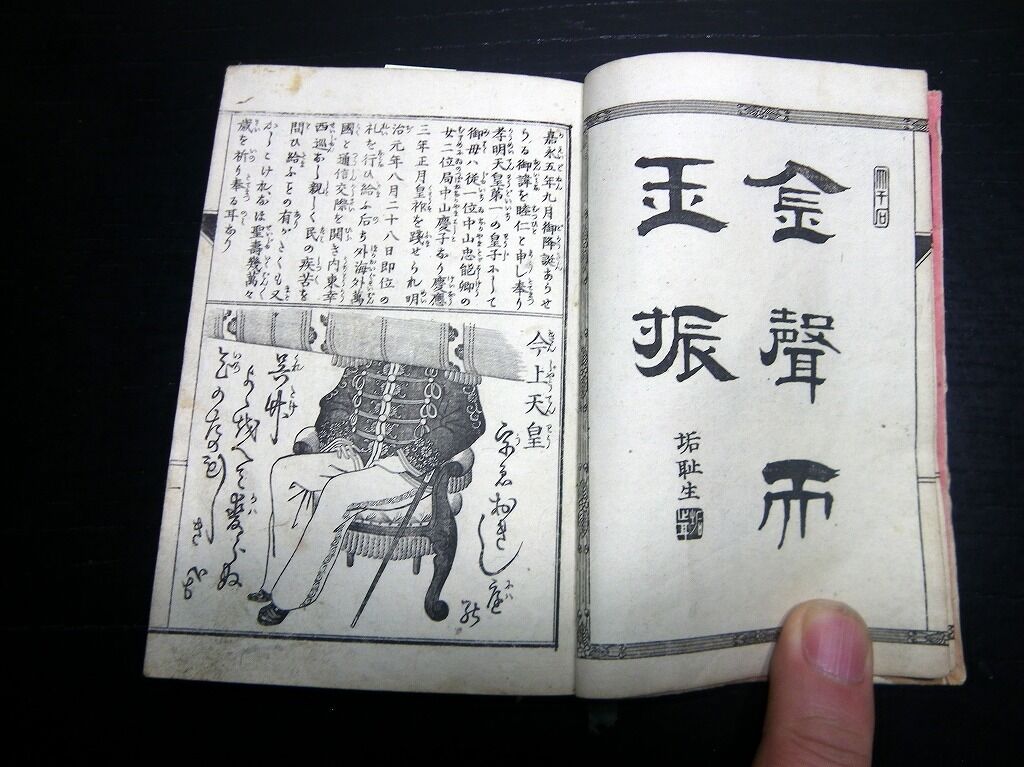 金聲而
玉振
垢耻生
嘉永五年九月御降誕あらせ
らる御諱を睦仁と申し奉り
孝明天皇第一の皇子にして
御母ハ従一位中山忠能卿の
女二位局中山慶子なり慶應
三年正月皇祚を踐せられ明
治元年八月二十八日即位の
礼を行ひ給ふ后ち外海外萬
國と通信交際を開き内東幸
西巡なし親しく民の疾苦を
問ひ給ふヿの有がたくも又
かしこけれなほ聖壽幾萬々
歳を祈り奉る耳なり
今上天皇
呉竹